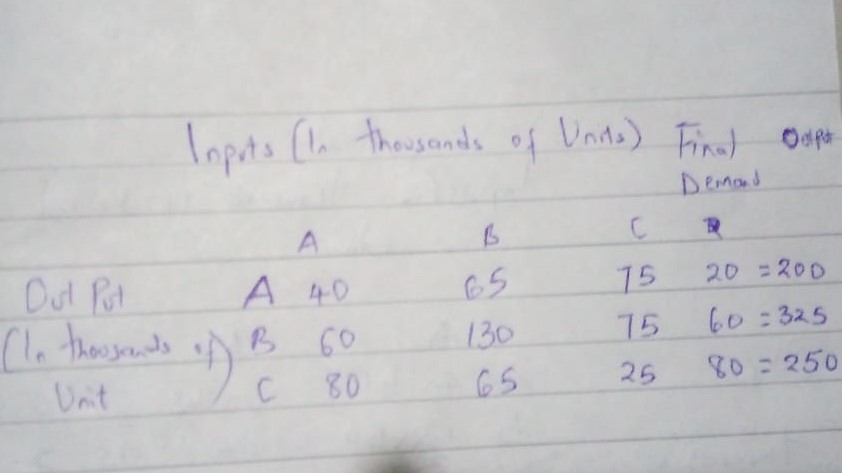 Inputs (In thousands of Units) Final Output
Demand
A B C
Out Put A 40 65 75 20 = 200
(In thousands of) B 60 130 75 60 = 325
Unit C 80 65 25 80 = 250